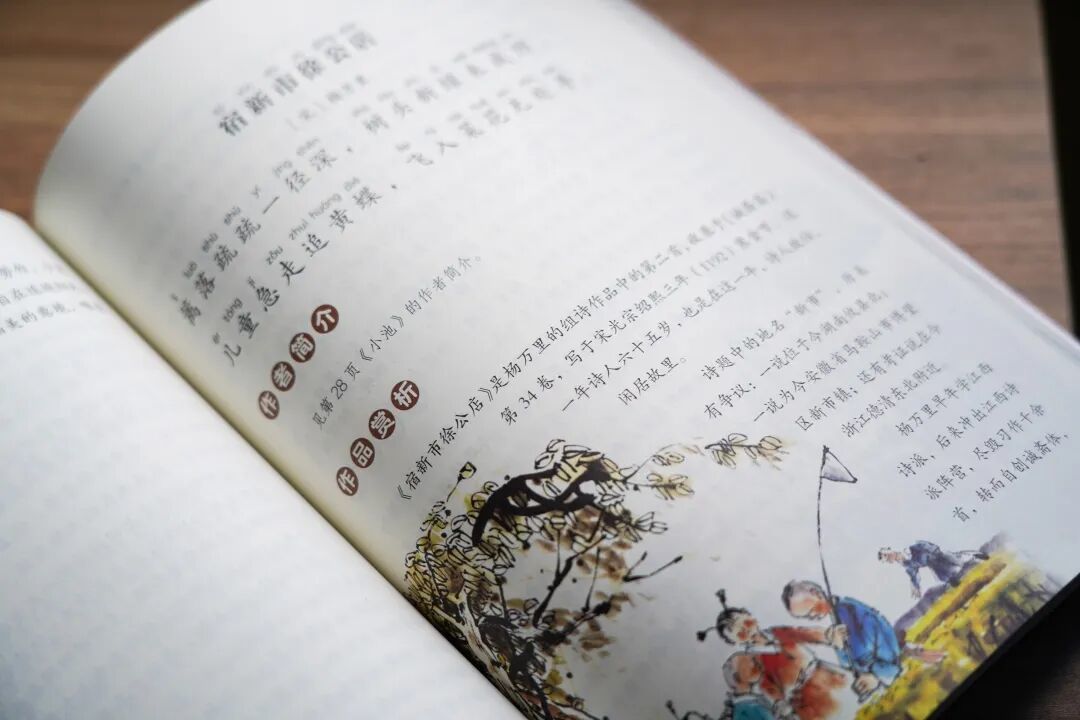 宿新市徐公店
luò shū shū yí jìng shēn
篱落疏疏一径深，树头新绿未成阴。
ér tóng jí zǒu zhuī huáng dié
儿童急走追黄蝶，飞入菜花无处寻。
作者简介
见第28页《小池》的作者简介。
作品赏析
《宿新市徐公店》是杨万里的组诗作品中的第二首，收录于《诚斋集》
第34卷，写于宋光宗绍熙三年（1192）寒食节。这
一年诗人六十五岁，也是在这一年，诗人致仕，
闲居故里。
诗题中的地名“新市”，尚案
有争议：一说位于今湖南攸县北；
一说为今安徽省马鞍山市博望
区新市镇；还有考证说在今
浙江德清东北附近。
杨万里早年学江西
诗派，后来冲出江西诗
派阵营，尽毁习作千余
首，转而自创诚斋体，